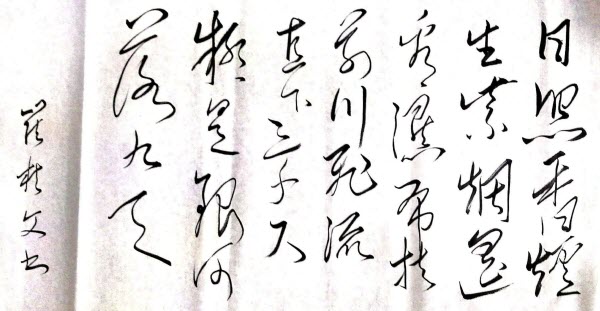 日照香爐
生紫烟遥
看瀑布挂
前川飛流
直下三千尺
疑是銀河
落九天
崔文书